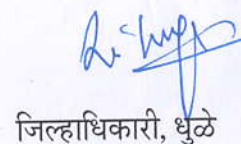 जिल्हाधिकारी, धुळे